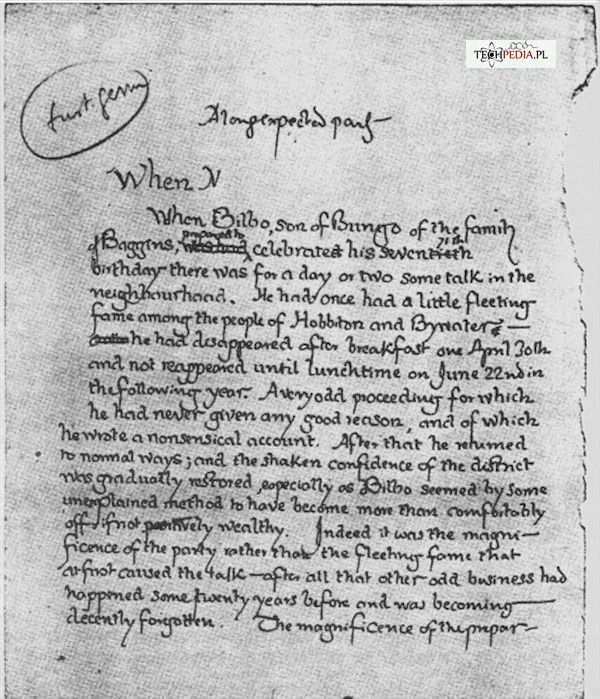 TECHPEDIA.PL
first germ
A long expected party
When N
When Bilbo, son of Bungo of the family
prepared to 71th
of Baggins, was had celebrated his seventieth
birthday there was for a day or two some talk in the
neighbourhood. He had once had a little fleeting
fame among the people of Hobbiton and Bywater —
he had disappeared after breakfast one April 30th
and not reappeared until lunchtime on June 22nd in
the following year. A very odd proceeding for which
he had never given any good reason, and of which
he wrote a nonsensical account. After that he returned
to normal ways; and the shaken confidence of the district
was gradually restored, especially as Bilbo seemed by some
unexplained method to have become more than comfortably
off, if not positively wealthy. Indeed it was the magni-
ficence of the party rather than the fleeting fame that
at first caused the talk — after all that other odd business had
happened some twenty years before and was becoming
decently forgotten. The magnificence of the prepar-